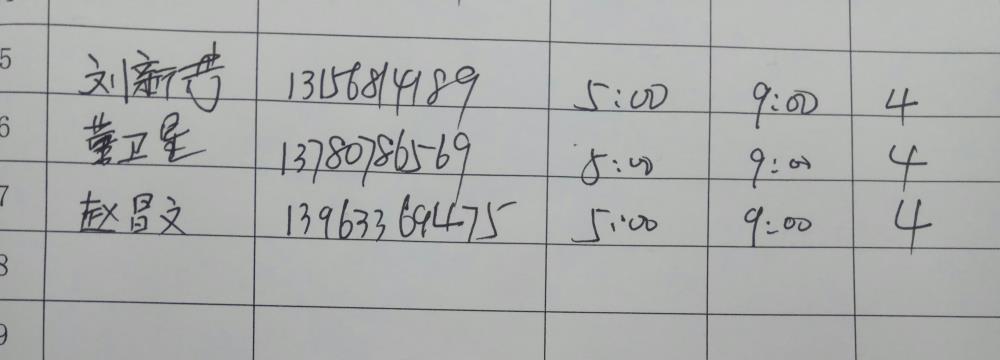 5 刘新 13156814189 5:00 9:00 4
6 董卫星 13780786569 5:00 9:00 4
7 赵昌文 13963369475 5:00 9:00 4
8
9